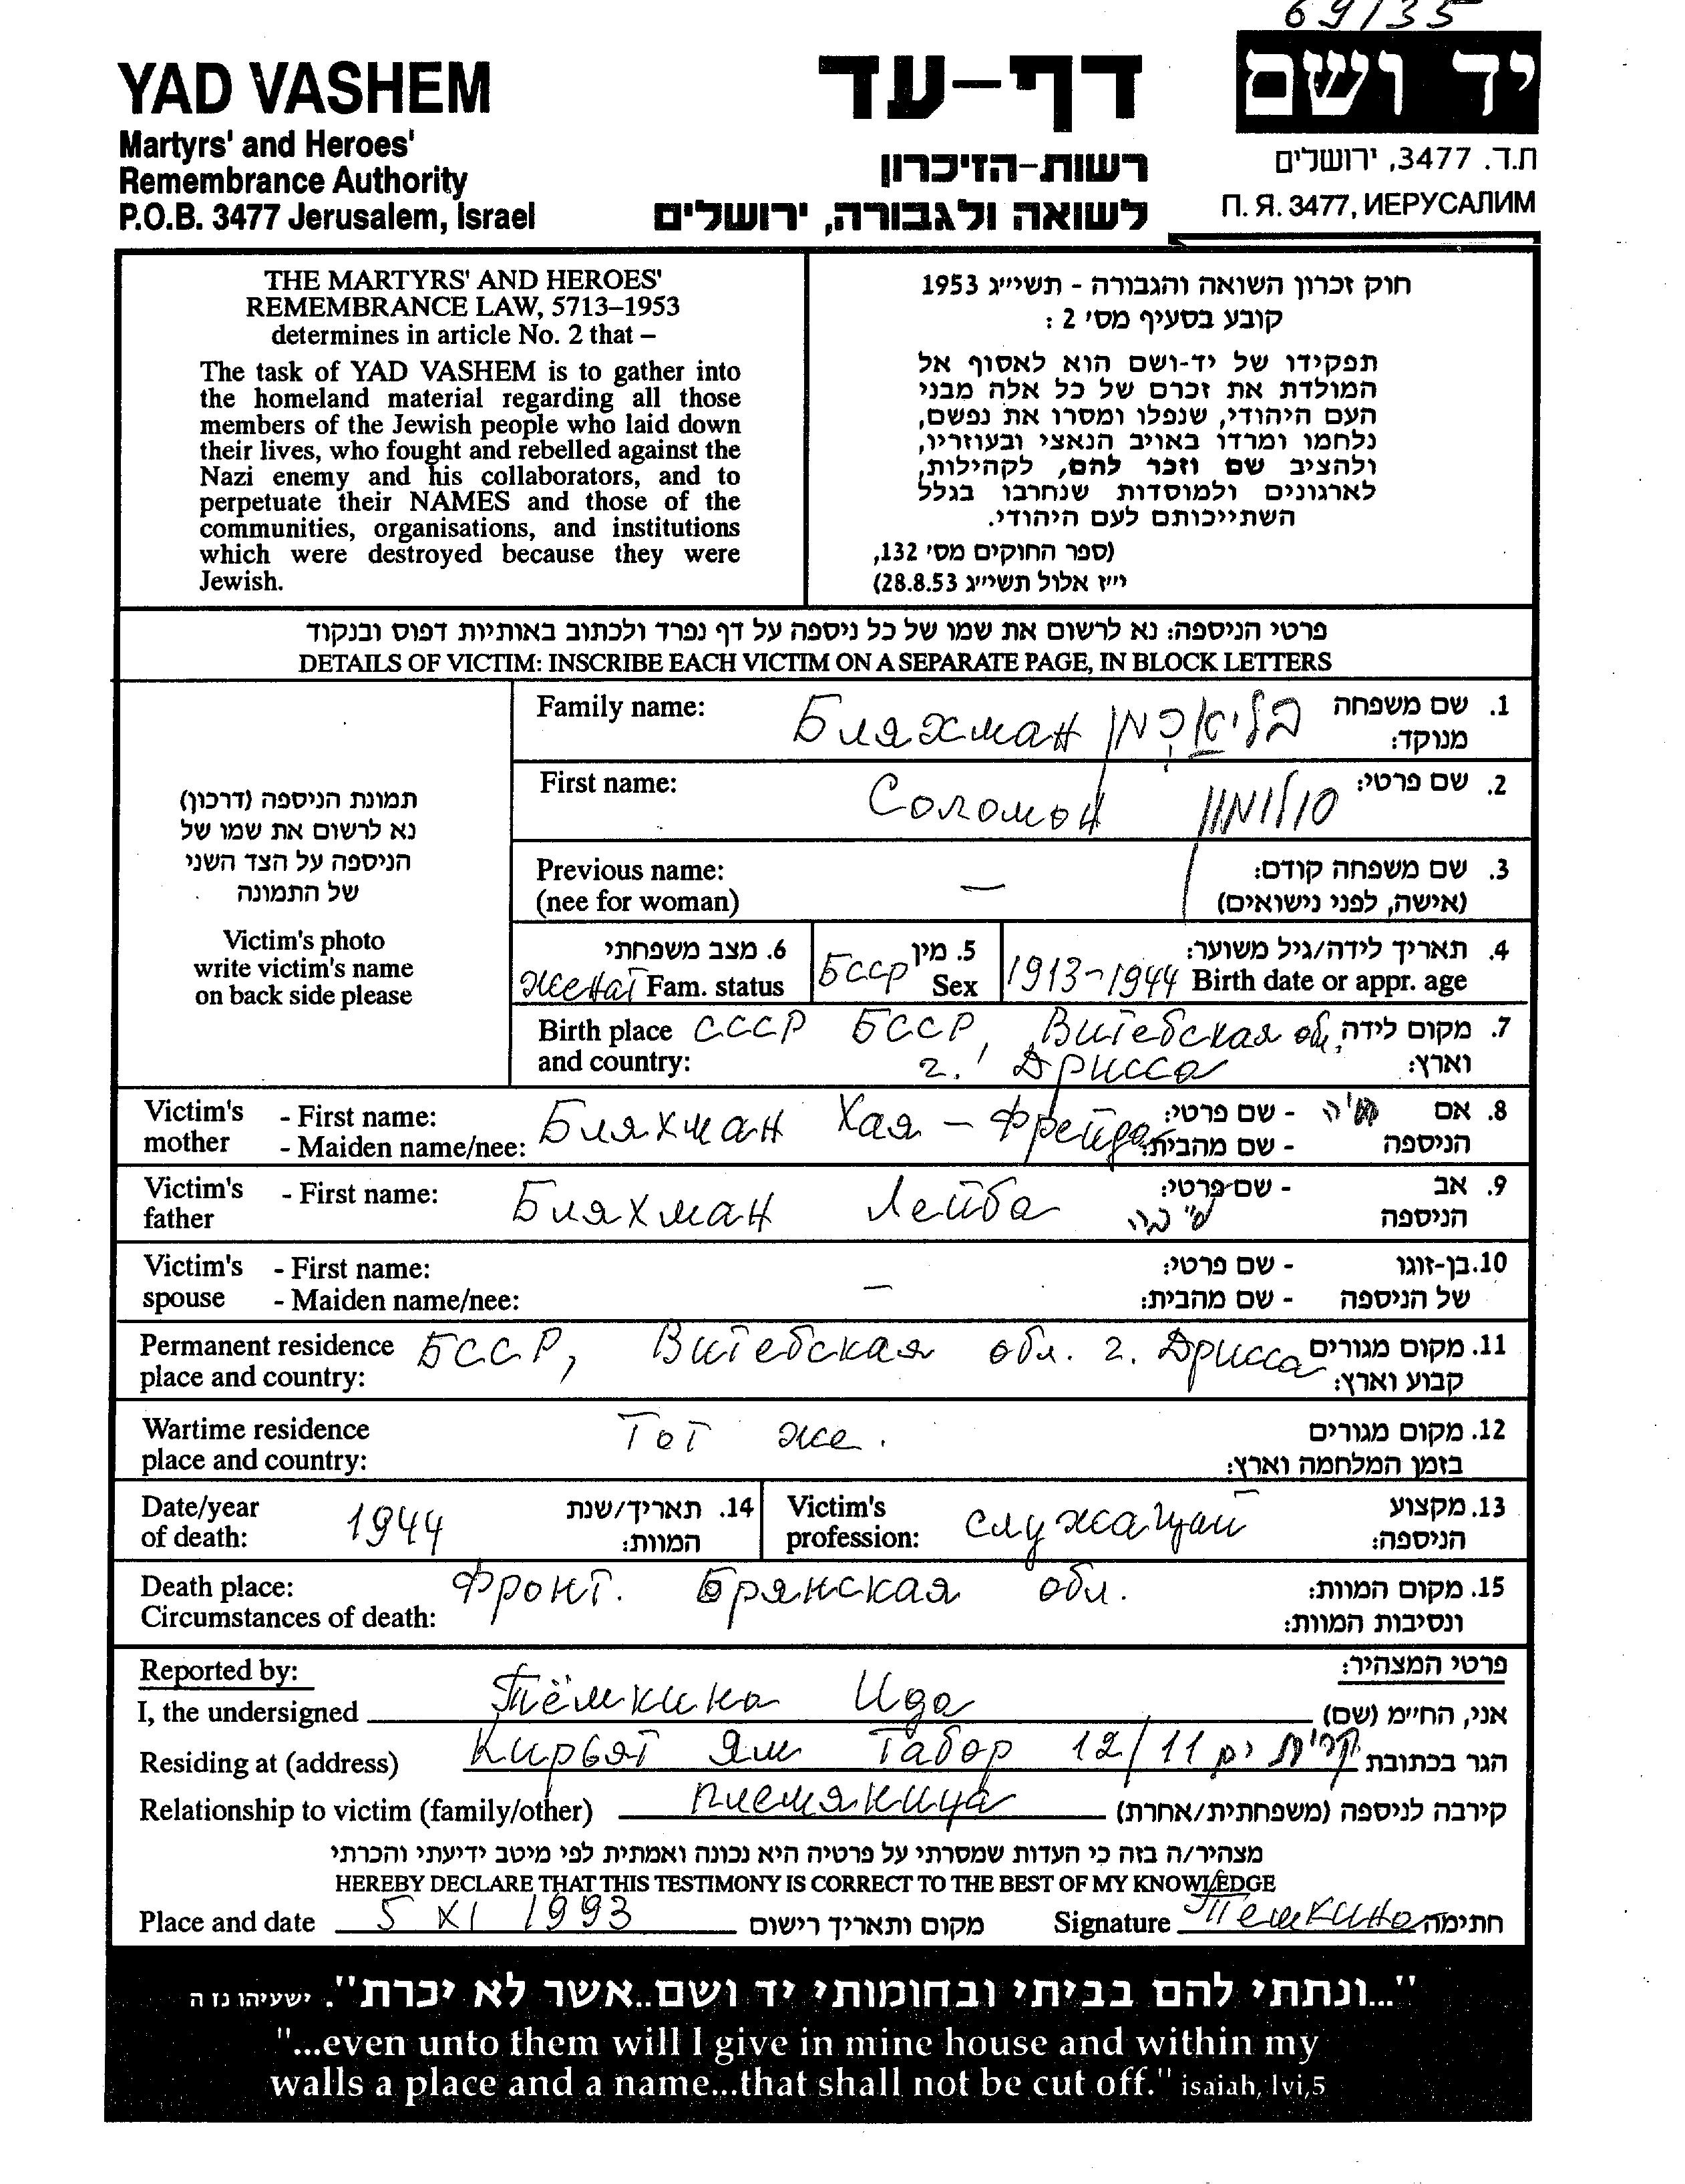 69/35
YAD VASHEM
Martyrs' and Heroes'
Remembrance Authority
P.O.B. 3477 Jerusalem, Israel
דף-עד
רשות-הזיכרון
לשואה ולגבורה, ירושלים
יד ושם
ת.ד. 3477, ירושלים
П. Я. 3477, ИЕРУСАЛИМ
THE MARTYRS' AND HEROES'
REMEMBRANCE LAW, 5713–1953
determines in article No. 2 that –
The task of YAD VASHEM is to gather into
the homeland material regarding all those
members of the Jewish people who laid down
their lives, who fought and rebelled against the
Nazi enemy and his collaborators, and to
perpetuate their NAMES and those of the
communities, organisations, and institutions
which were destroyed because they were
Jewish.
חוק זכרון השואה והגבורה - תשי״ג 1953
קובע בסעיף מס' 2 :
תפקידו של יד-ושם הוא לאסוף אל
המולדת את זכרם של כל אלה מבני
העם היהודי, שנפלו ומסרו את נפשם,
נלחמו ומרדו באויב הנאצי ובעוזריו,
ולהציב שם וזכר להם, לקהילות,
לארגונים ולמוסדות שנחרבו בגלל
השתייכותם לעם היהודי.
(ספר החוקים מס' 132,
י״ז אלול תשי״ג 28.8.53)
פרטי הניספה: נא לרשום את שמו של כל ניספה על דף נפרד ולכתוב באותיות דפוס ובנקוד
DETAILS OF VICTIM: INSCRIBE EACH VICTIM ON A SEPARATE PAGE, IN BLOCK LETTERS
תמונת הניספה (דרכון)
נא לרשום את שמו של
הניספה על הצד השני
של התמונה
Victim's photo
write victim's name
on back side please
Family name: Бляхман בליאכמן 1. שם משפחה
מנוקד:
First name: Соломон סולומון 2. שם פרטי:
Previous name: — 3. שם משפחה קודם:
(nee for woman) (אישה, לפני נישואים)
6. מצב משפחתי 5. מין 4. תאריך לידה/גיל משוער:
женат Fam. status БССР Sex 1913-1944 Birth date or appr. age
Birth place СССР БССР, Витебская об. 7. מקום לידה
and country: г. Дрисса וארץ:
Victim's - First name: Бляхман Хая - Фрейда - שם פרטי: חיה 8. אם
mother - Maiden name/nee: - שם מהבית: הניספה
Victim's - First name: Бляхман Лейба - שם פרטי: 9. אב
father הניספה
Victim's - First name: - שם פרטי: 10. בן-זוגו
spouse - Maiden name/nee: — - שם מהבית: של הניספה
Permanent residence БССР, Витебская обл. г. Дрисса 11. מקום מגורים
place and country: קבוע וארץ:
Wartime residence Тот же. 12. מקום מגורים
place and country: בזמן המלחמה וארץ:
Date/year 1944 14. תאריך/שנת Victim's служащий 13. מקצוע
of death: המוות: profession: הניספה:
Death place: Фронт. Брянская обл. 15. מקום המוות:
Circumstances of death: ונסיבות המוות:
Reported by: פרטי המצהיר:
I, the undersigned Тёмкина Ида אני, החיימ (שם)
Residing at (address) Кирьят Ям Табор 12/11 קרית ים הגר בכתובת
Relationship to victim (family/other) племяница קירבה לניספה (משפחתית/אחרת)
מצהיר/ה בזה כי העדות שמסרתי על פרטיה היא נכונה ואמתית לפי מיטב ידיעתי והכרתי
HEREBY DECLARE THAT THIS TESTIMONY IS CORRECT TO THE BEST OF MY KNOWLEDGE
Place and date 5 XI 1993 מקום ותאריך רישום Signature Темкина חתימה
"...ונתתי להם בביתי ובחומותי יד ושם..אשר לא יכרת". ישעיהו נז ה
"...even unto them will I give in mine house and within my
walls a place and a name...that shall not be cut off." isaiah, lvi,5